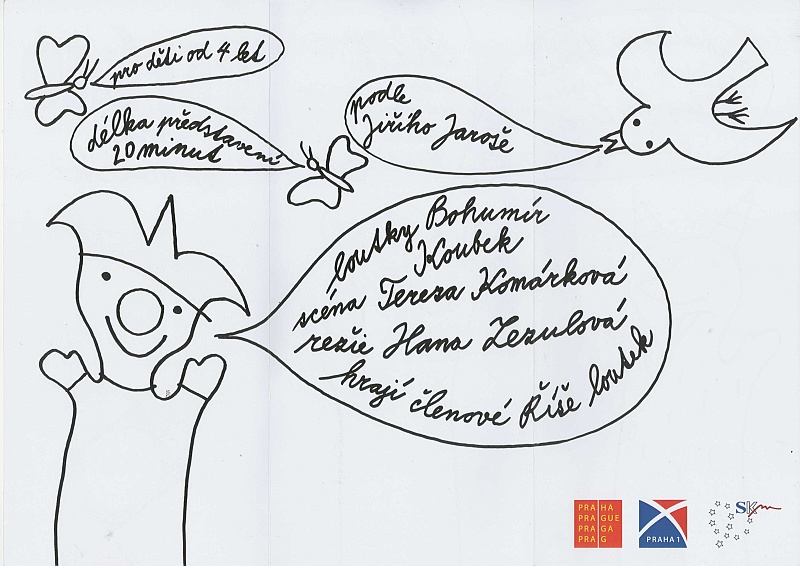 pro děti od 4 let
délka představení
20 minut
podle
Jiřího Jaroše
loutky Bohumír
Koubek
scéna Tereza Komárková
režie Hana Zezulová
hrají členové Říše loutek
PRAHA
PRAGUE
PRAGA
PRAG
PRAHA 1